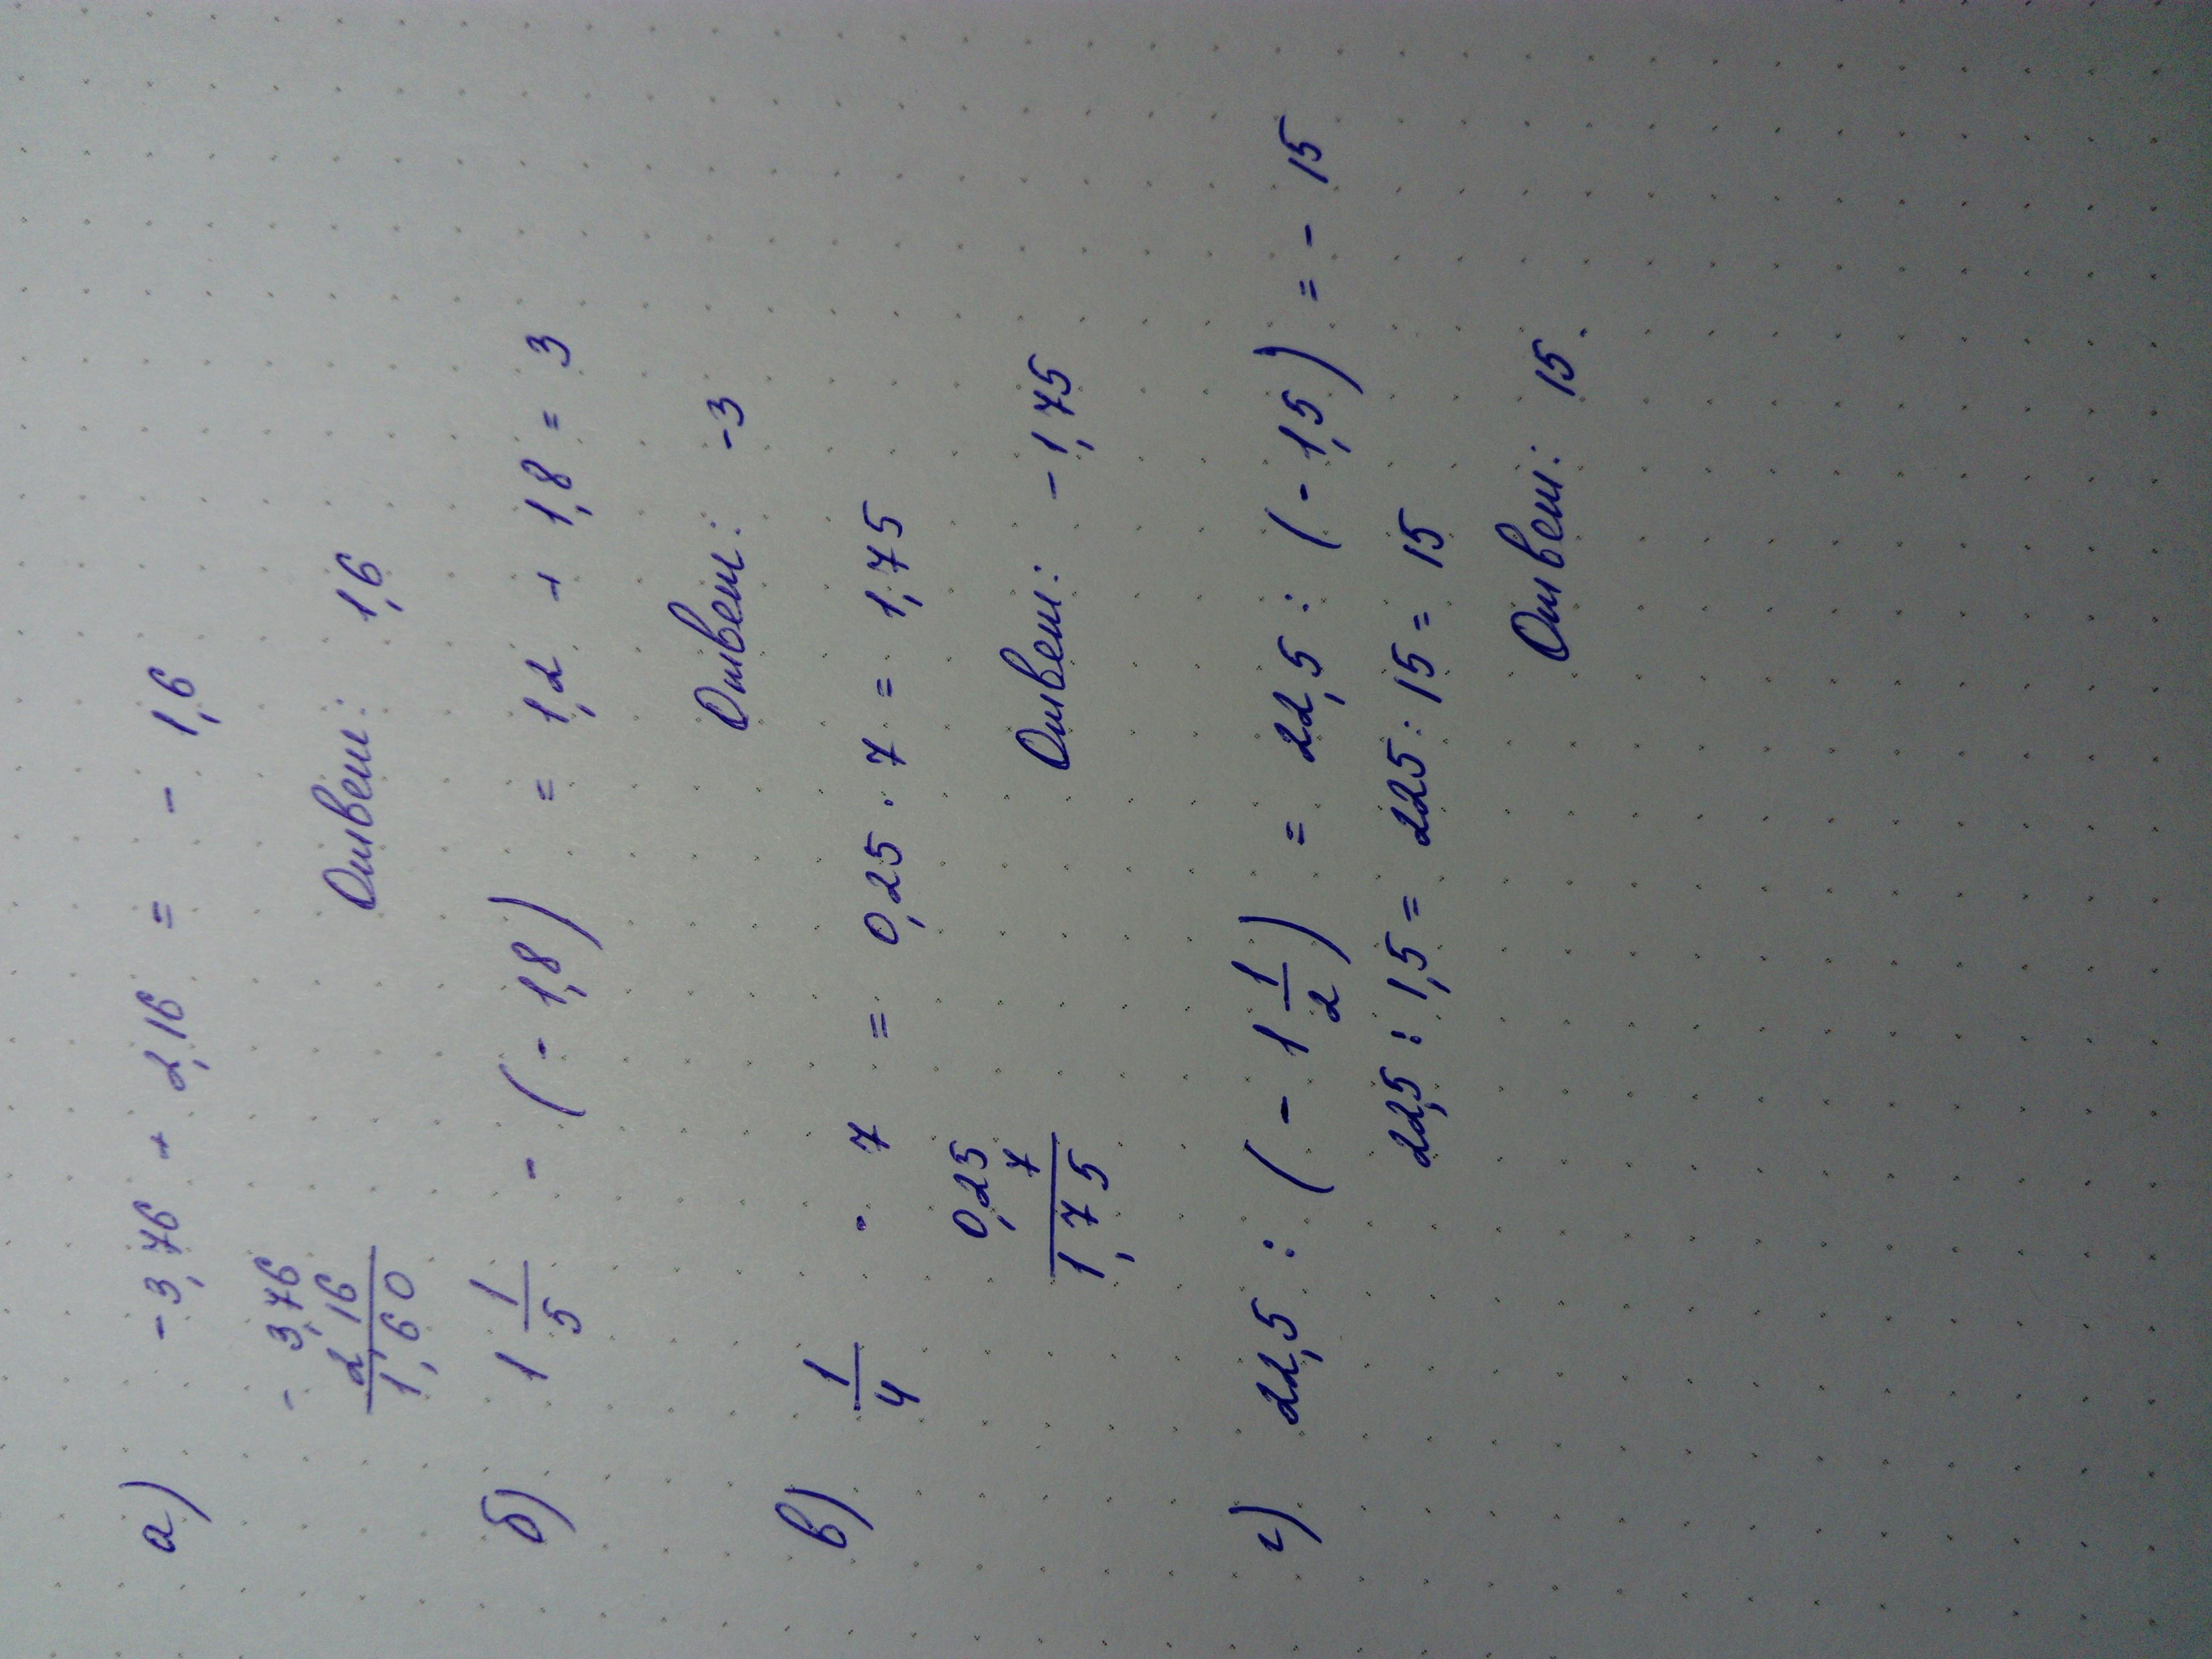 а) -3,76 + 2,16 = - 1,6
- 3,76
2,16
1,60
Ответ: 1,6
б) 1 1/5 - (- 1,8) = 1,2 + 1,8 = 3
Ответ: -3
в) 1/4 · 7 = 0,25 · 7 = 1,75
0,25
7
1,75
Ответ: -1,75
г) 22,5 : (- 1 1/2) = 22,5 : (- 1,5) = - 15
22,5 : 1,5 = 225 : 15 = 15
Ответ: 15.